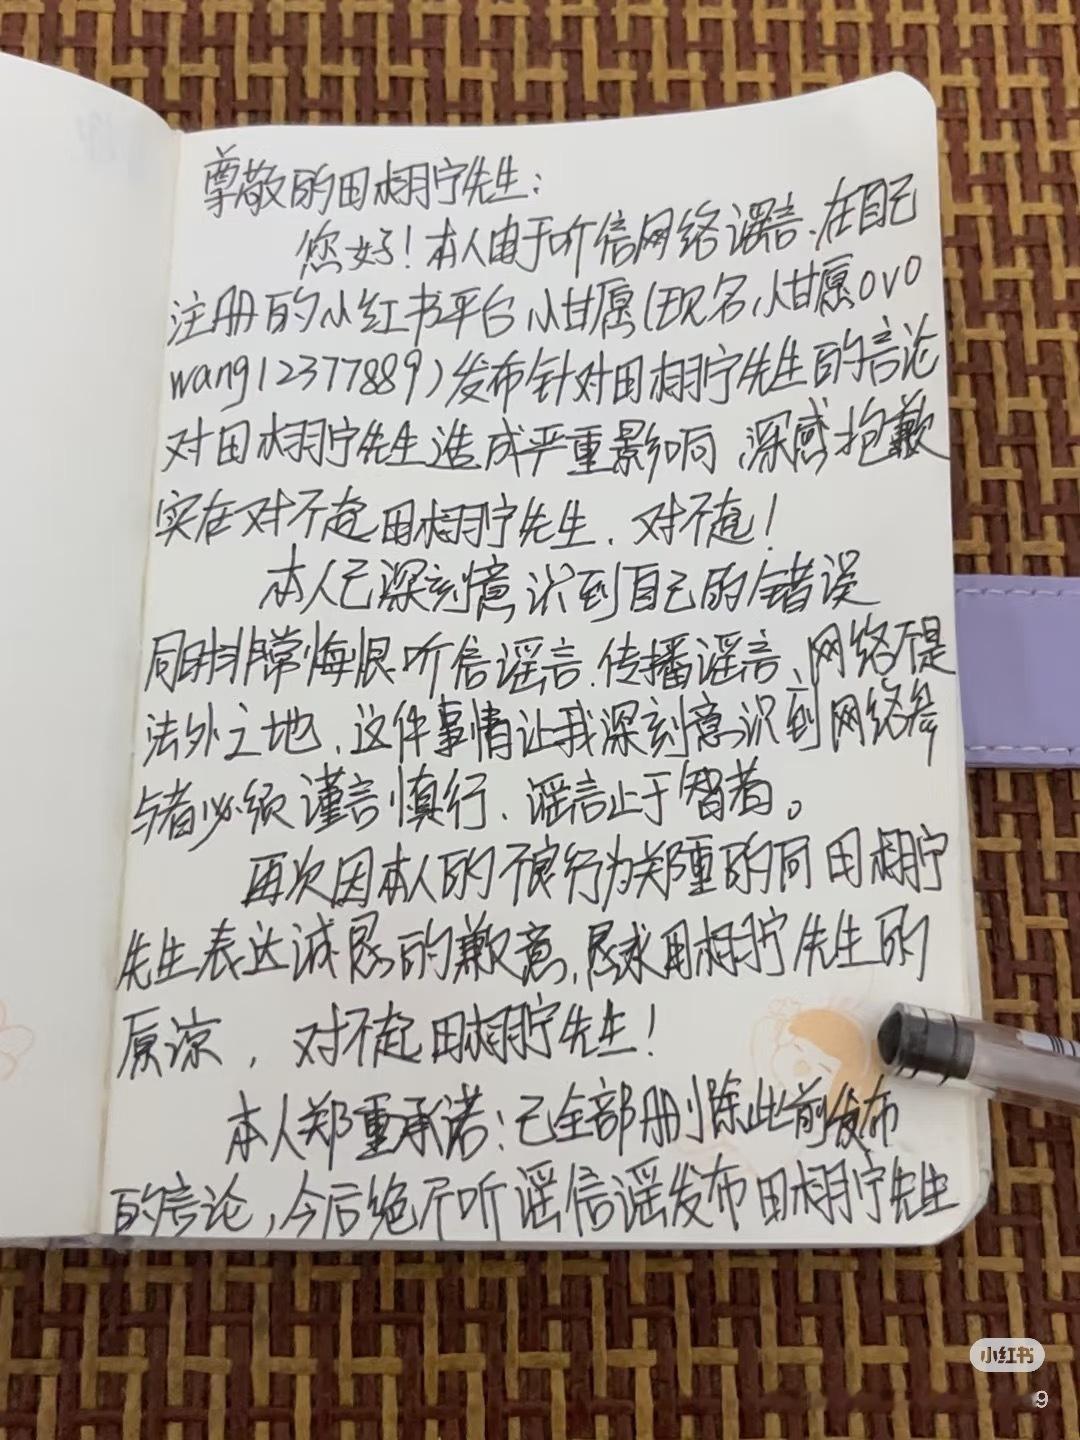 尊敬的田栩宁先生：
您好！本人由于听信网络谣言、在自己
注册的小红书平台小甘愿(现名小甘愿ovo
wang12377889)发布针对田栩宁先生的言论
对田栩宁先生造成严重影响、深感抱歉
实在对不起田栩宁先生、对不起！
本人已深刻意识到自己的错误
同时非常悔恨听信谣言、传播谣言、网络不是
法外之地、这件事情让我深刻意识到网络参
与者必须谨言慎行、谣言止于智者。
再次因本人的不良行为郑重的向田栩宁
先生表达诚恳的歉意、恳求田栩宁先生的
原谅，对不起田栩宁先生！
本人郑重承诺：已全部删除此前发布
的言论，今后绝不听谣信谣发布田栩宁先生
小红书
9